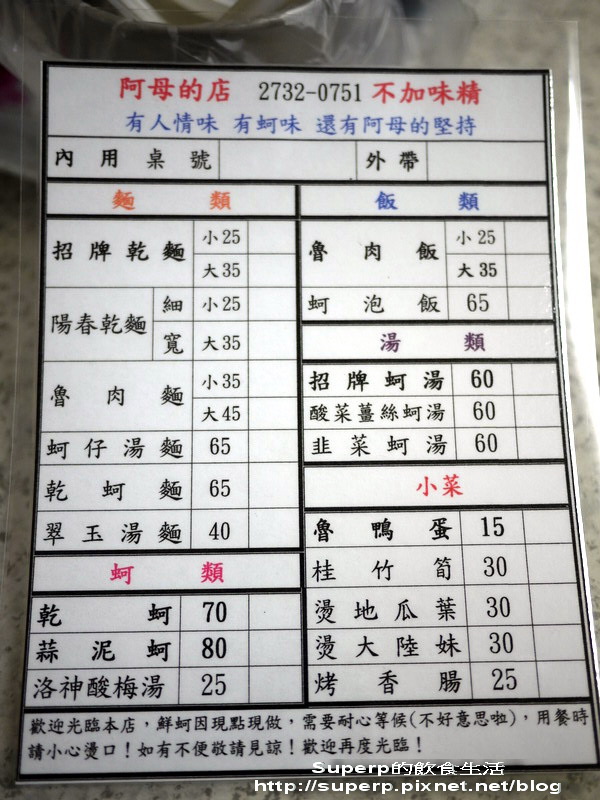 阿母的店 2732-0751 不加味精
有人情味 有蚵味 還有阿母的堅持
內用桌號 外帶
麵類
招牌乾麵 小25
大35
陽春乾麵 細 小25
寬 大35
魯肉麵 小35
大45
蚵仔湯麵 65
乾蚵麵 65
翠玉湯麵 40
蚵類
乾蚵 70
蒜泥蚵 80
洛神酸梅湯 25
飯類
魯肉飯 小25
大35
蚵泡飯 65
湯類
招牌蚵湯 60
酸菜薑絲蚵湯 60
韭菜蚵湯 60
小菜
魯鴨蛋 15
桂竹筍 30
燙地瓜葉 30
燙大陸妹 30
烤香腸 25
歡迎光臨本店，鮮蚵因現點現做，需要耐心等候(不好意思啦)，用餐時
請小心燙口！如有不便敬請見諒！歡迎再度光臨！
Superp的飲食生活
http://superp.pixnet.net/blog